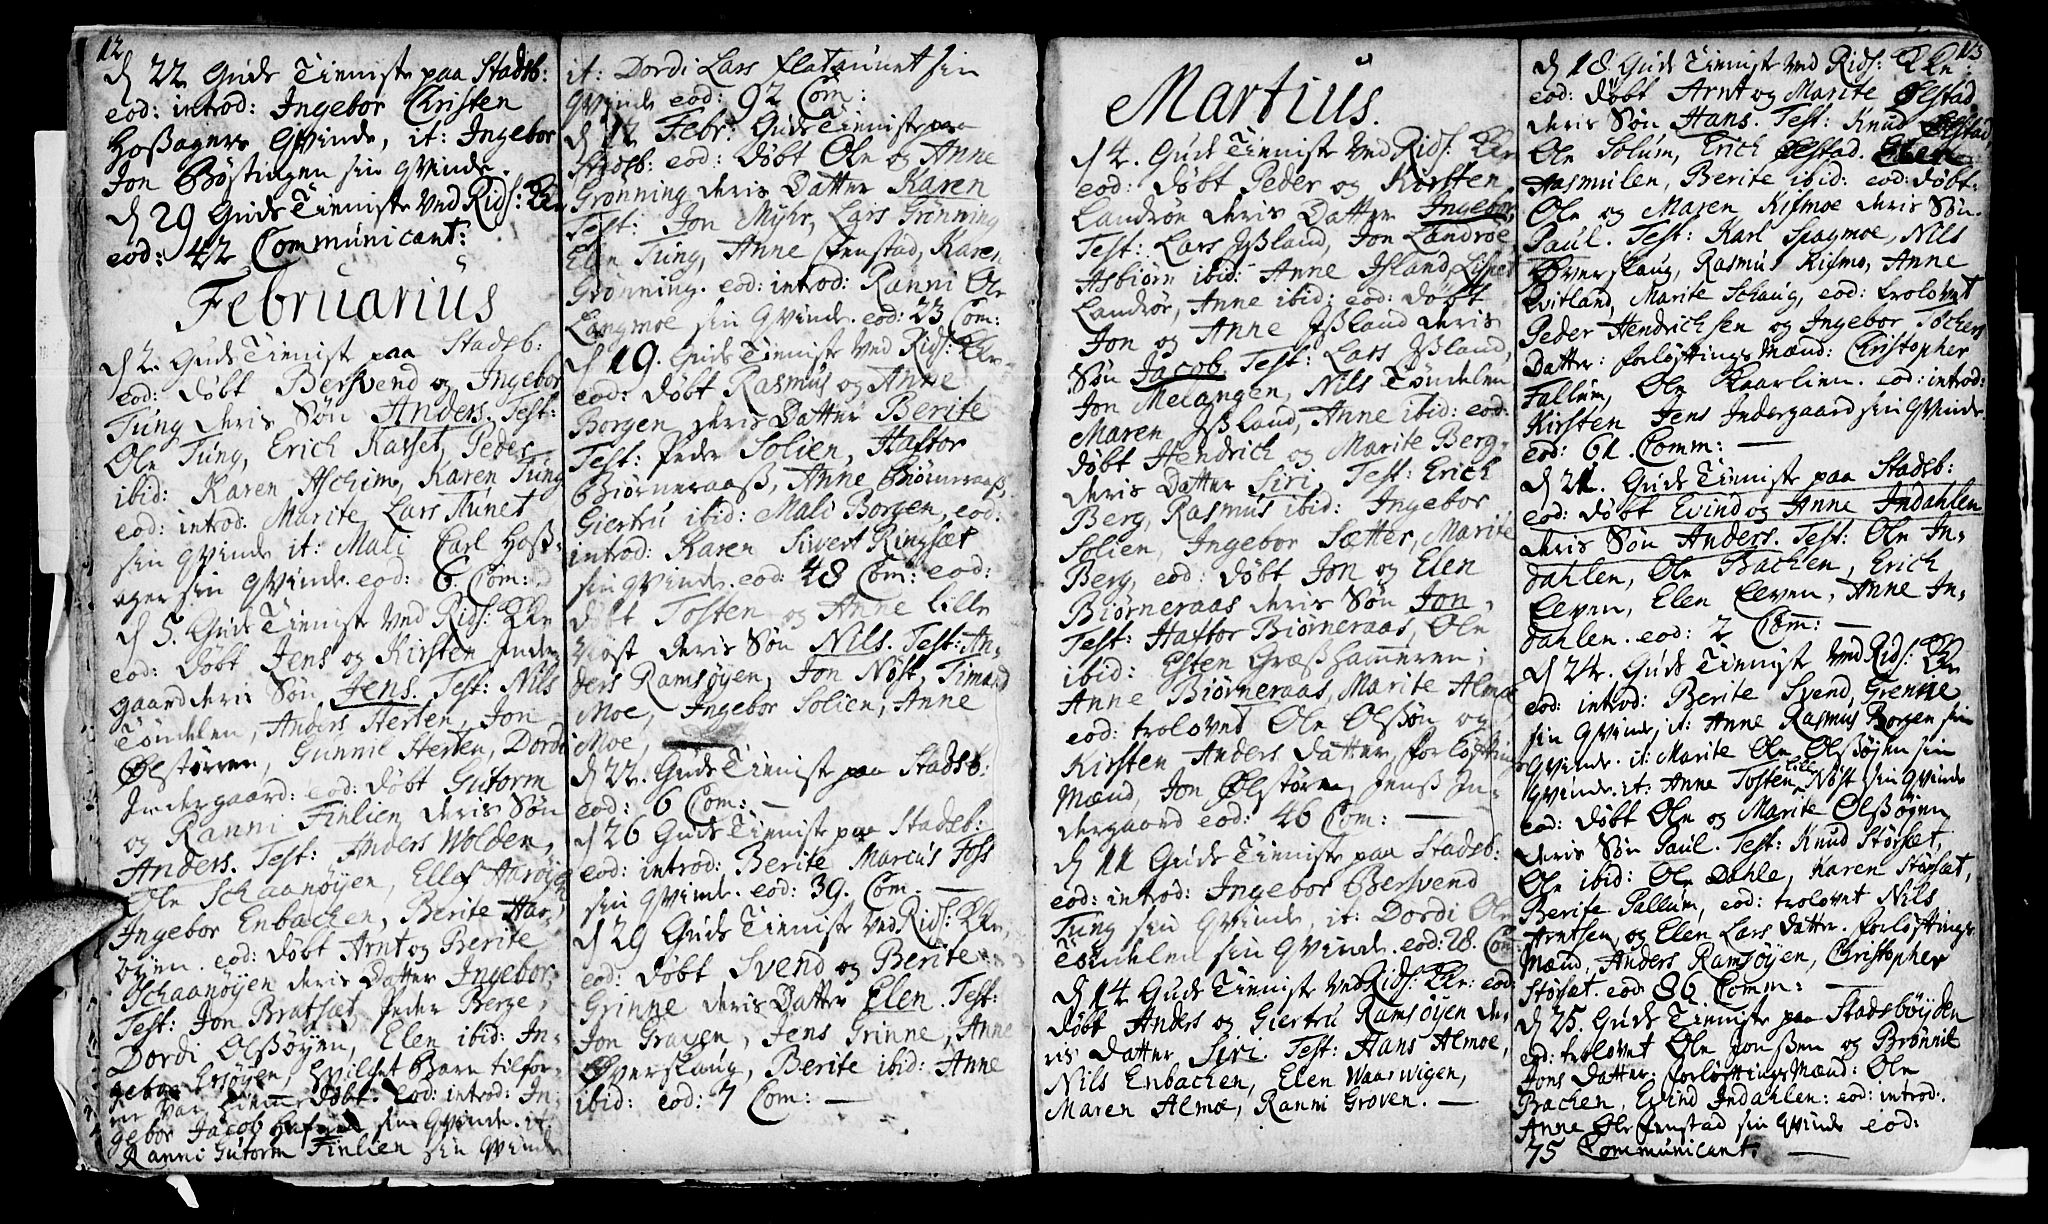 12
d 22 Guds Tieniste paa Stadsb:
eod: introd: Ingebor Christen
Hoßagers Qvinde, it: Ingebor
Jon Bøstingen sin qvinde.
d 29 Guds Tieniste ved Rids: Kle
eod: 42 Communicant:
Februarius
d 2. Guds Tieniste paa Stadsb:
eod: døbt Bersvend og Ingebor
Tung deris Søn Anders. Test:
Ole Tung, Erich Kasset, Peder
ibid: Karen Aschim, Karen Tung
eod: introd. Marite Lars Tunet
sin qvinde it: Mali Carl Hoß-
ager sin qvinde. eod: 6. Com:
d 5. Guds Tieniste ved Rids: Kle
eod: døbt Jens og Kirsten Inder
gaard deris Søn Jens. Test: Nils
Tøndelen, Anders Herten, Jon
Ølstøren, Gunnil Herten, Dordi
Indergaard: eod: døbt Gutorm
og Ranni Finlien deris Søn
Anders. Test: Anders Wolden,
Ole Schaanøyen, Ellef Aarøien
Ingebor Enbachen, Berite Aar-
øyen. eod: døbt Arnt og Berite
Schaanøyen deris Datter Ingebor,
Test: Jon Bratset, Peder Berge,
Dordi Olsøyen, Elen ibid: In-
gebor Ersøyen, hvilchet Barn tilfor-
ne var hiemme døbt. eod: introd: In-
gebor Jacob sin qvinde. it
Ranni Gutorm Finlien sin qvinde
it: Dordi Lars Flataunet sin
qvinde eod: 92 Com:
d 12 Febr: Guds Tieniste paa
Stadsb: eod: døbt Ole og Anne
Grønning deris Datter Karen
Test: Jon Myhr, Lars Grønning
Elen Tung, Anne Fenstad, Karen
Grønning. eod: introd: Ranni Ole
Langmoe sin qvinde. eod: 23 Com:
d 19. Guds Tieniste ved Rids: Kle
eod: døbt Rasmus og Anne
Borgen deris Datter Berite
Test: Peder Solien, Haftor
Biørneraaß, Anne Biørneraaß,
Giertru ibid: Mali Borgen, eod:
introd: Karen Sivert Ringsæt
sin qvinde. eod: 48 Com: eod:
døbt Tosten og Anne lille
Nøst deris Søn Nils. Test: An-
ders Ramsøyen, Jon Nøst, Timand
Moe, Ingebor Solien, Anne
Moe,
d 22. Guds Tieniste paa Stadsb:
eod: 6 Com: —
d 26 Guds Tieniste paa Stadsb:
eod: introd: Berite Marcus Foss
sin qvinde. eod: 39. Com. —
d 29 Guds Tieniste ved Rids: Kle,
eod: døbt Svend og Berite
Grinne deris Datter Elen. Test:
Jon Graven, Jens Grinne, Anne
Øverskaug, Berite ibid: Anne
ibid: eod: 7 Com: —
Martius.
d 4. Guds Tieniste ved Rids: Kle
eod: døbt Peder og Kirsten
Landrøe deris Datter Ingebor,
Test: Lars Ißland, Jon Landrøe,
Asbiørn ibid: Anne Island, Lisbet
Landrøe, Anne ibid: eod: døbt
Jon og Anne Ißland deris
Søn Jacob. Test: Lars Ißland,
Jon Melangen, Nils Tøndelen
Maren Ißland, Anne ibid: eod:
døbt Hendrich og Marite Berg
deris Datter Siri, Test: Erich
Berg, Rasmus ibid: Ingebor
Solien, Ingebor Sætter, Marite
Berg, eod: døbt Jon og Elen
Biørneraas deris Søn Jon,
Test: Haftor Biørneraas, Ole
ibid: Esten Græßhammeren,
Anne Biørneraas, Marite Almoe,
eod: trolovet Ole Olssøn og
Kirsten Anders datter forløftnings
Mænd, Jon Ølstøren, Jenß In-
dergaard eod: 46 Com: —
d 11 Guds Tieniste paa Stadsb:
eod: introd: Ingebor Bersvend
Tung sin Qvinde, it: Dordi Ole
Tøndelen sin Qvinde. eod: 28. Com:
d 14 Guds Tieniste ved Rids: Kle: eod:
døbt Anders og Giertru Ramsøyen de-
ris Datter Siri. Test: Hans Almoe,
Nils Enbachen, Elen Waarwigen,
Maren Almoe, Ranni Groven. —
13
d 18. Guds Tieniste ved Rids: Kle
eod: døbt Arnt og Marite Ølstad
deris Søn Hans. Test: Knud Ølstad,
Ole Solum, Erich Ølstad.
Aasmulen, Berite ibid: eod: døbt:
Ole og Maren Risimoe deris Søn
Paul. Test: Karl Spagmoe, Nils
Øverskaug, Rasmus Risimo, Anne
Evitland, Marite Schaug, eod: trolovet
Peder Hendrichsen og Ingebor Tochers
Datter: forløftnings Mænd: Christopher
Fallum, Ole Kaarlien. eod: introd:
Kirsten Jens Indergaard sin Qvinde.
eod: 61. Comm: —
d 21. Guds Tieniste paa Stadsb:
eod: døbt Evind og Anne Indahlen
deris Søn Anders. Test: Ole In-
dahlen, Ole Bachen, Erich
Eeven, Elen Eeven, Anne In-
dahlen. eod: 2 Com: —
d 24. Guds Tieniste ved Rids: Kle
eod: introd: Berite Svend Grinne
sin qvinde, it: Anne Rasmus Borgen sin
qvinde. it: Marite Ole Olsøyen sin
qvinde. it: Anne Tosten lille Nøst sin qvinde
eod: døbt Ole og Marite Olsøyen
deris Søn Paul. Test: Knud Størset,
Ole ibid: Ole Dahle, Karen Størset,
Berite Fallum, eod: trolovet Nils
Arntsen og Elen Lars datter. forløftnings
Mænd, Anders Ramsøyen, Christopher
Størset. eod: 86 Comm: —
d 25. Guds Tieniste paa Stadsbøyden
eod: trolovet Ole Jonßen og Brønnil
Jons Datter: forløftnings Mænd: Ole
Bachen, Evind Indahlen: eod: introd:
Anne Ole Fenstad sin Qvinde eod:
75 Communicant. —